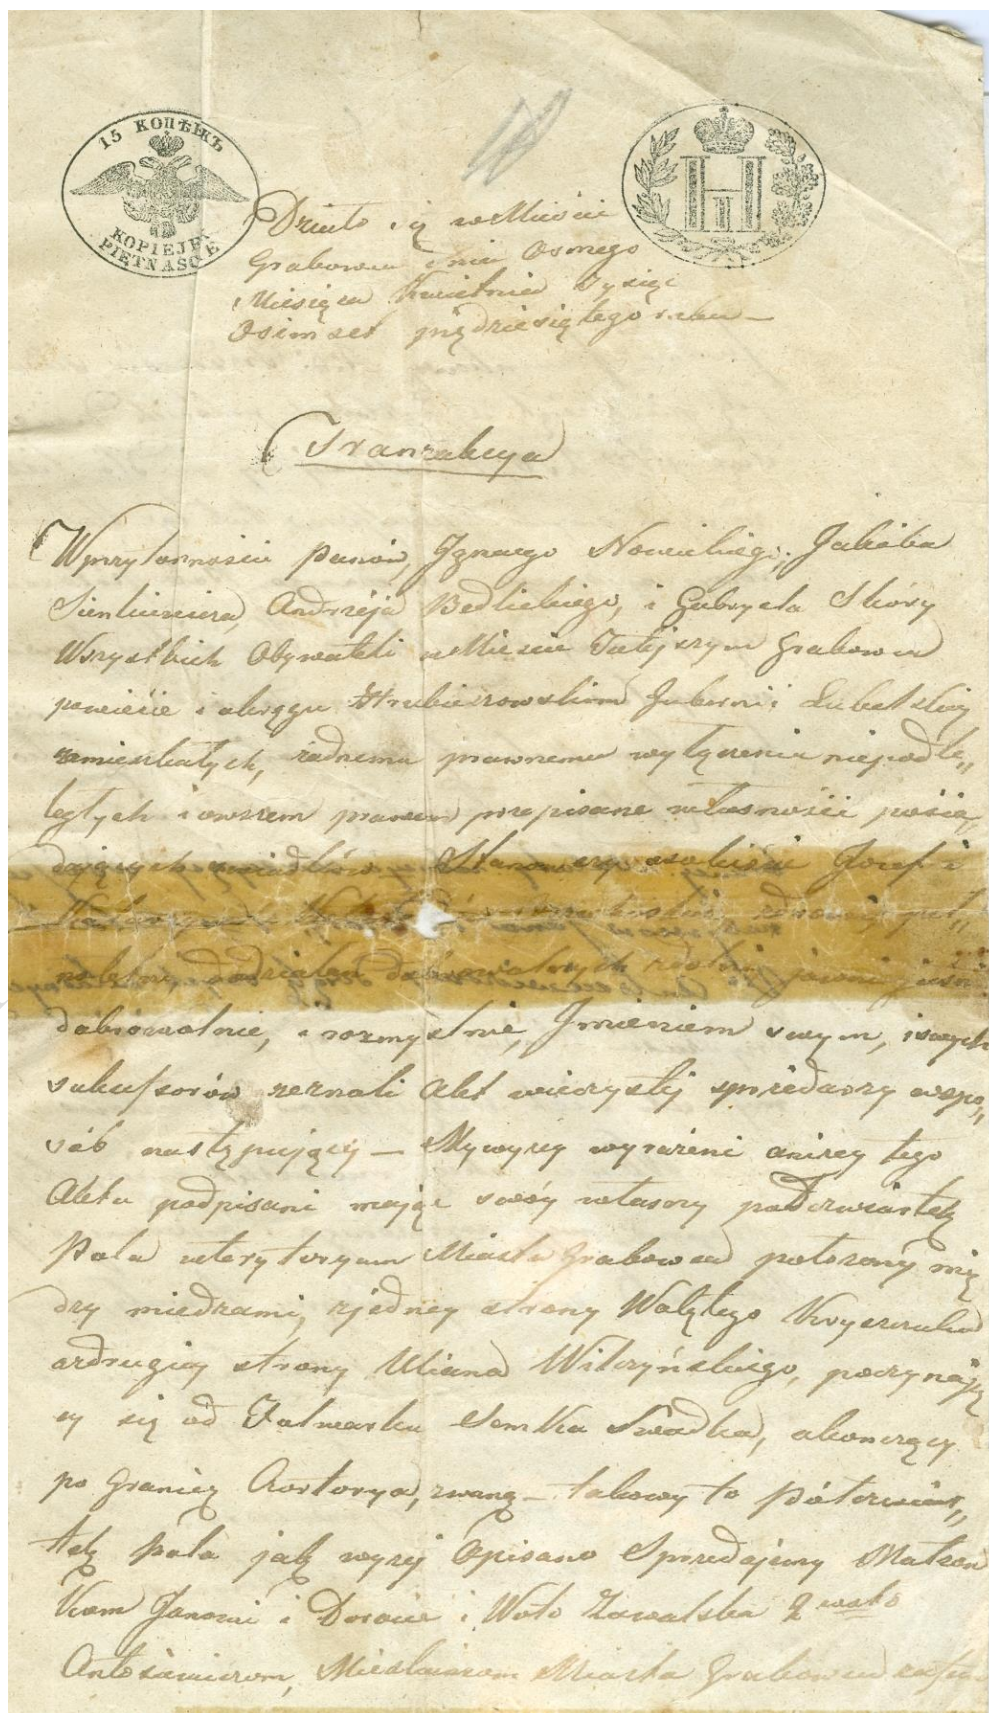 15 КОПѢЕКЪ
KOPIEJEK
PIĘTNAŚCIE
H II
Działo się w Mieście
Grabowcu dnia Osmego
Miesiąca Kwietnia Tysiąc
Osimset pięćdziesiątego roku —
Tranzakcya
W przytomności Panów, Ignacego Nowickiego, Jakóba
Sienkiewicza, Andrzéja Bedlickiego, i Gabryela Skóry
Wszystkich Obywateli w Mieście Tutejszym Grabowcu
powiecie i okręgu Hrubieszowskim Gubernii Lubelskiéj
zamieszkałych, żadnemu prawnemu wyłączeniu niepodle„
łegłych i owszem prawem przepisane własności posia„
dających świadków — Stanowszy osobiście Józef i
Katarzyna zdrowi, peł„
noletni, do działań dobrowolnych zdolni, jawnie jaśnie
dobrowolnie, i rozmyślnie, Imieniem swym, i swych
sukcessorów zeznali Akt wieczystéj sprzedaży w spo„
sób następujący — My wyżéj wyrażeni a niżéj tego
Aktu podpisani mając swóy własny półćwiartek
Pola w terytoryum Miasta Grabowca położony mię
dzy miedzami, z jednéj strony Walętego Kryszczuka
a z drugiéj strony Uliana Wilczyńskiego, poczynają
cy się od Folwarku Semka Swadka, a kończący
po Granicę zwaną — takowy to półćwiar„
tek Pola jak wyżéj Opisano Sprzedajemy Małżon
kom Janowi i Dorocie i Woto Zawalska 2 woto
Antosiewiczom, Mieszkańcom Miasta Grabowca